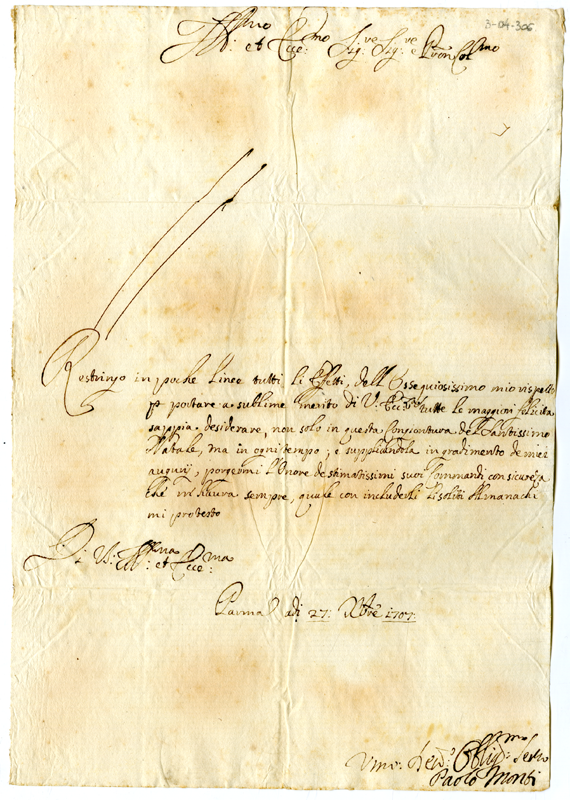 3-04-306
Ill:mo et Ecc:mo Sig:re Sig:re e Pron Col:mo
Restringo in poche linee tutti li Effetti, dell Ossequiosissimo mio rispetto
p portare a sublime merito di V: Ecc:za tutte le maggiori felicita
sappia desiderare, non solo in questa Congiontura del Santissimo
Natale, ma in ogni tempo; e supplicandola in gradimento de miei
augurij, porgermi l'Onore de stimatissimi suoi Commandi con sicurezza
che mi havra sempre, quale con includerli li soliti Almanachi
mi protesto
Di V: Ill:ma et Ecc:ma
Parma adi 27: Xbre 1707:
Umo: Devo: Obligmo: Servo
Paolo Monti